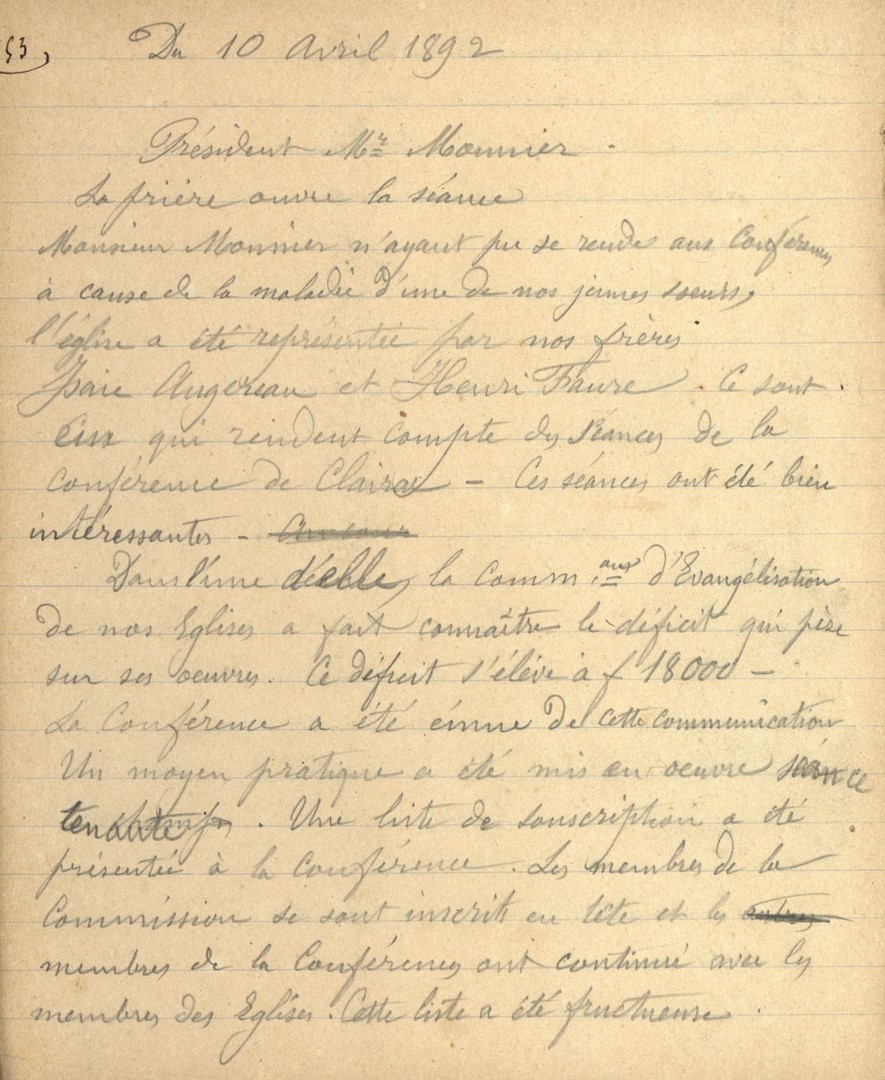 53
Du 10 Avril 1892
Président Mr Monnier -
La prière ouvre la séance
Monsieur Monnier n'ayant pu se rendre aux Conférences
à cause de la maladie d'une de nos jeunes soeurs,
l'église a été représentée par nos frères
Isaïe Augereau et Henri Faure. Ce sont
eux qui rendent compte des séances de la
conférence de Clairac - Ces séances ont été bien
intéressantes -
Dans l'une d'elle, la comm.on d'Evangélisation
de nos Eglises a fait connaître le déficit qui pèse
sur ses oeuvres. Ce déficit s'élève à f 18000 -
La Conférence a été émue de cette communication
Un moyen pratique a été mis en oeuvre séance
tenante. Une liste de souscription a été
présentée à la Conférence. Les membres de la
Commission se sont inscrits en tête et les autres
membres de la Conférences ont continué avec les
membres des Eglises. Cette liste a été fructueuse.